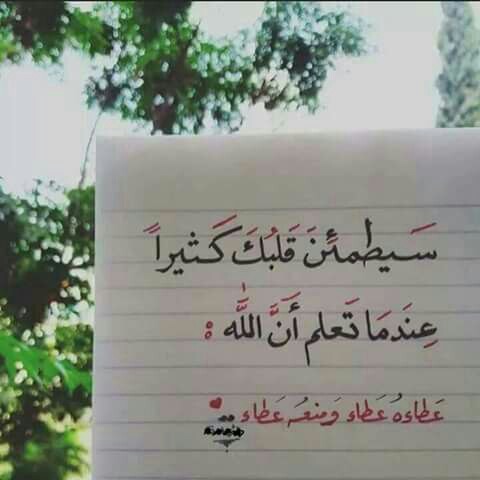 سَيطمئِنَ قَلبُكَ كَثيراً
عِندَمَا تَعلم أَنَّ اللّٰه :
عَطاءهُ عَطاء وَمنعُه عَطاء